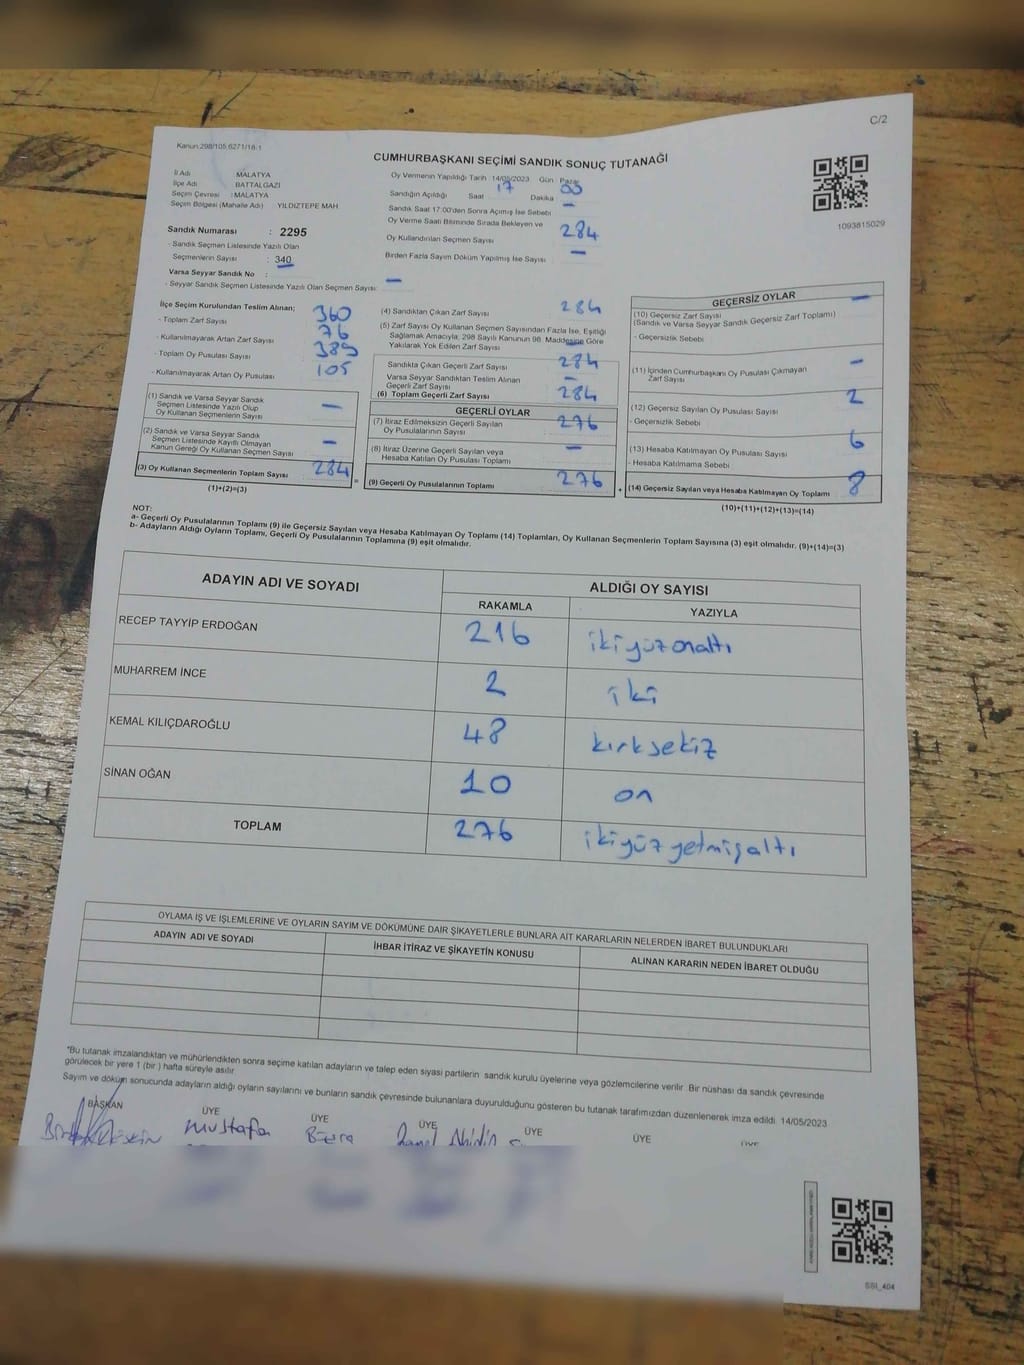 C/2
Kanun:298/105,6271/18-1
CUMHURBAŞKANI SEÇİMİ SANDIK SONUÇ TUTANAĞI
1093815029
İl Adı MALATYA
İlçe Adı : BATTALGAZİ
Seçim Çevresi : MALATYA
Seçim Bölgesi (Mahalle Adı) : YILDIZTEPE MAH
Sandık Numarası : 2295
- Sandık Seçmen Listesinde Yazılı Olan
Seçmenlerin Sayısı : 340
Varsa Seyyar Sandık No :
- Seyyar Sandık Seçmen Listesinde Yazılı Olan Seçmen Sayısı: –
Oy Vermenin Yapıldığı Tarih 14/05/2023 Gün Pazar
Sandığın Açıldığı Saat 17 Dakika 00
Sandık Saat 17:00'den Sonra Açımış İse Sebebi –
Oy Verme Saati Bitiminde Sırada Bekleyen ve
Oy Kullandırılan Seçmen Sayısı 284
Birden Fazla Sayım Döküm Yapılmış İse Sayısı –
İlçe Seçim Kurulundan Teslim Alınan;
- Toplam Zarf Sayısı 360
- Kullanılmayarak Artan Zarf Sayısı 76
- Toplam Oy Pusulası Sayısı 389
- Kullanılmayarak Artan Oy Pusulası 105
(1) Sandık ve Varsa Seyyar Sandık
Seçmen Listesinde Yazılı Olup
Oy Kullanan Seçmenlerin Sayısı –
(2) Sandık ve Varsa Seyyar Sandık
Seçmen Listesinde Kayıtlı Olmayan
Kanun Gereği Oy Kullanan Seçmen Sayısı –
(3) Oy Kullanan Seçmenlerin Toplam Sayısı 284
(1)+(2)=(3)
(4) Sandıktan Çıkan Zarf Sayısı 284
(5) Zarf Sayısı Oy Kullanan Seçmen Sayısından Fazla İse, Eşitliği
Sağlamak Amacıyla; 298 Sayılı Kanunun 98. Maddesine Göre
Yakılarak Yok Edilen Zarf Sayısı –
Sandıkta Çıkan Geçerli Zarf Sayısı 284
Varsa Seyyar Sandıktan Teslim Alınan
Geçerli Zarf Sayısı –
(6) Toplam Geçerli Zarf Sayısı 284
GEÇERLİ OYLAR
(7) İtiraz Edilmeksizin Geçerli Sayılan
Oy Pusulalarının Sayısı 276
(8) İtiraz Üzerine Geçerli Sayılan veya
Hesaba Katılan Oy Pusulası Toplamı –
= (9) Geçerli Oy Pusulalarının Toplamı 276
GEÇERSİZ OYLAR
(10) Geçersiz Zarf Sayısı –
(Sandık ve Varsa Seyyar Sandık Geçersiz Zarf Toplamı)
- Geçersizlik Sebebi
(11) İçinden Cumhurbaşkanı Oy Pusulası Çıkmayan
Zarf Sayısı –
(12) Geçersiz Sayılan Oy Pusulası Sayısı 2
- Geçersizlik Sebebi
(13) Hesaba Katılmayan Oy Pusulası Sayısı 6
- Hesaba Katılmama Sebebi
+ (14) Geçersiz Sayılan veya Hesaba Katılmayan Oy Toplamı 8
(10)+(11)+(12)+(13)=(14)
NOT:
a- Geçerli Oy Pusulalarının Toplamı (9) ile Geçersiz Sayılan veya Hesaba Katılmayan Oy Toplamı (14) Toplamları, Oy Kullanan Seçmenlerin Toplam Sayısına (3) eşit olmalıdır. (9)+(14)=(3)
b- Adayların Aldığı Oyların Toplamı, Geçerli Oy Pusulalarının Toplamına (9) eşit olmalıdır.
ADAYIN ADI VE SOYADI ALDIĞI OY SAYISI
RAKAMLA YAZIYLA
RECEP TAYYİP ERDOĞAN 216 ikiyüzonaltı
MUHARREM İNCE 2 iki
KEMAL KILIÇDAROĞLU 48 kırksekiz
SİNAN OĞAN 10 on
TOPLAM 276 ikiyüzyetmişaltı
OYLAMA İŞ VE İŞLEMLERİNE VE OYLARIN SAYIM VE DÖKÜMÜNE DAİR ŞİKAYETLERLE BUNLARA AİT KARARLARIN NELERDEN İBARET BULUNDUKLARI
ADAYIN ADI VE SOYADI İHBAR İTİRAZ VE ŞİKAYETİN KONUSU ALINAN KARARIN NEDEN İBARET OLDUĞU
*Bu tutanak imzalandıktan ve mühürlendikten sonra seçime katılan adayların ve talep eden siyasi partilerin sandık kurulu üyelerine veya gözlemcilerine verilir. Bir nüshası da sandık çevresinde
görülecek bir yere 1 (bir) hafta süreyle asılır.
Sayım ve döküm sonucunda adayların aldığı oyların sayılarını ve bunların sandık çevresinde bulunanlara duyurulduğunu gösteren bu tutanak tarafımızdan düzenlenerek imza edildi. 14/05/2023
BAŞKAN ÜYE ÜYE ÜYE ÜYE ÜYE ÜYE
Mustafa
SSI_404